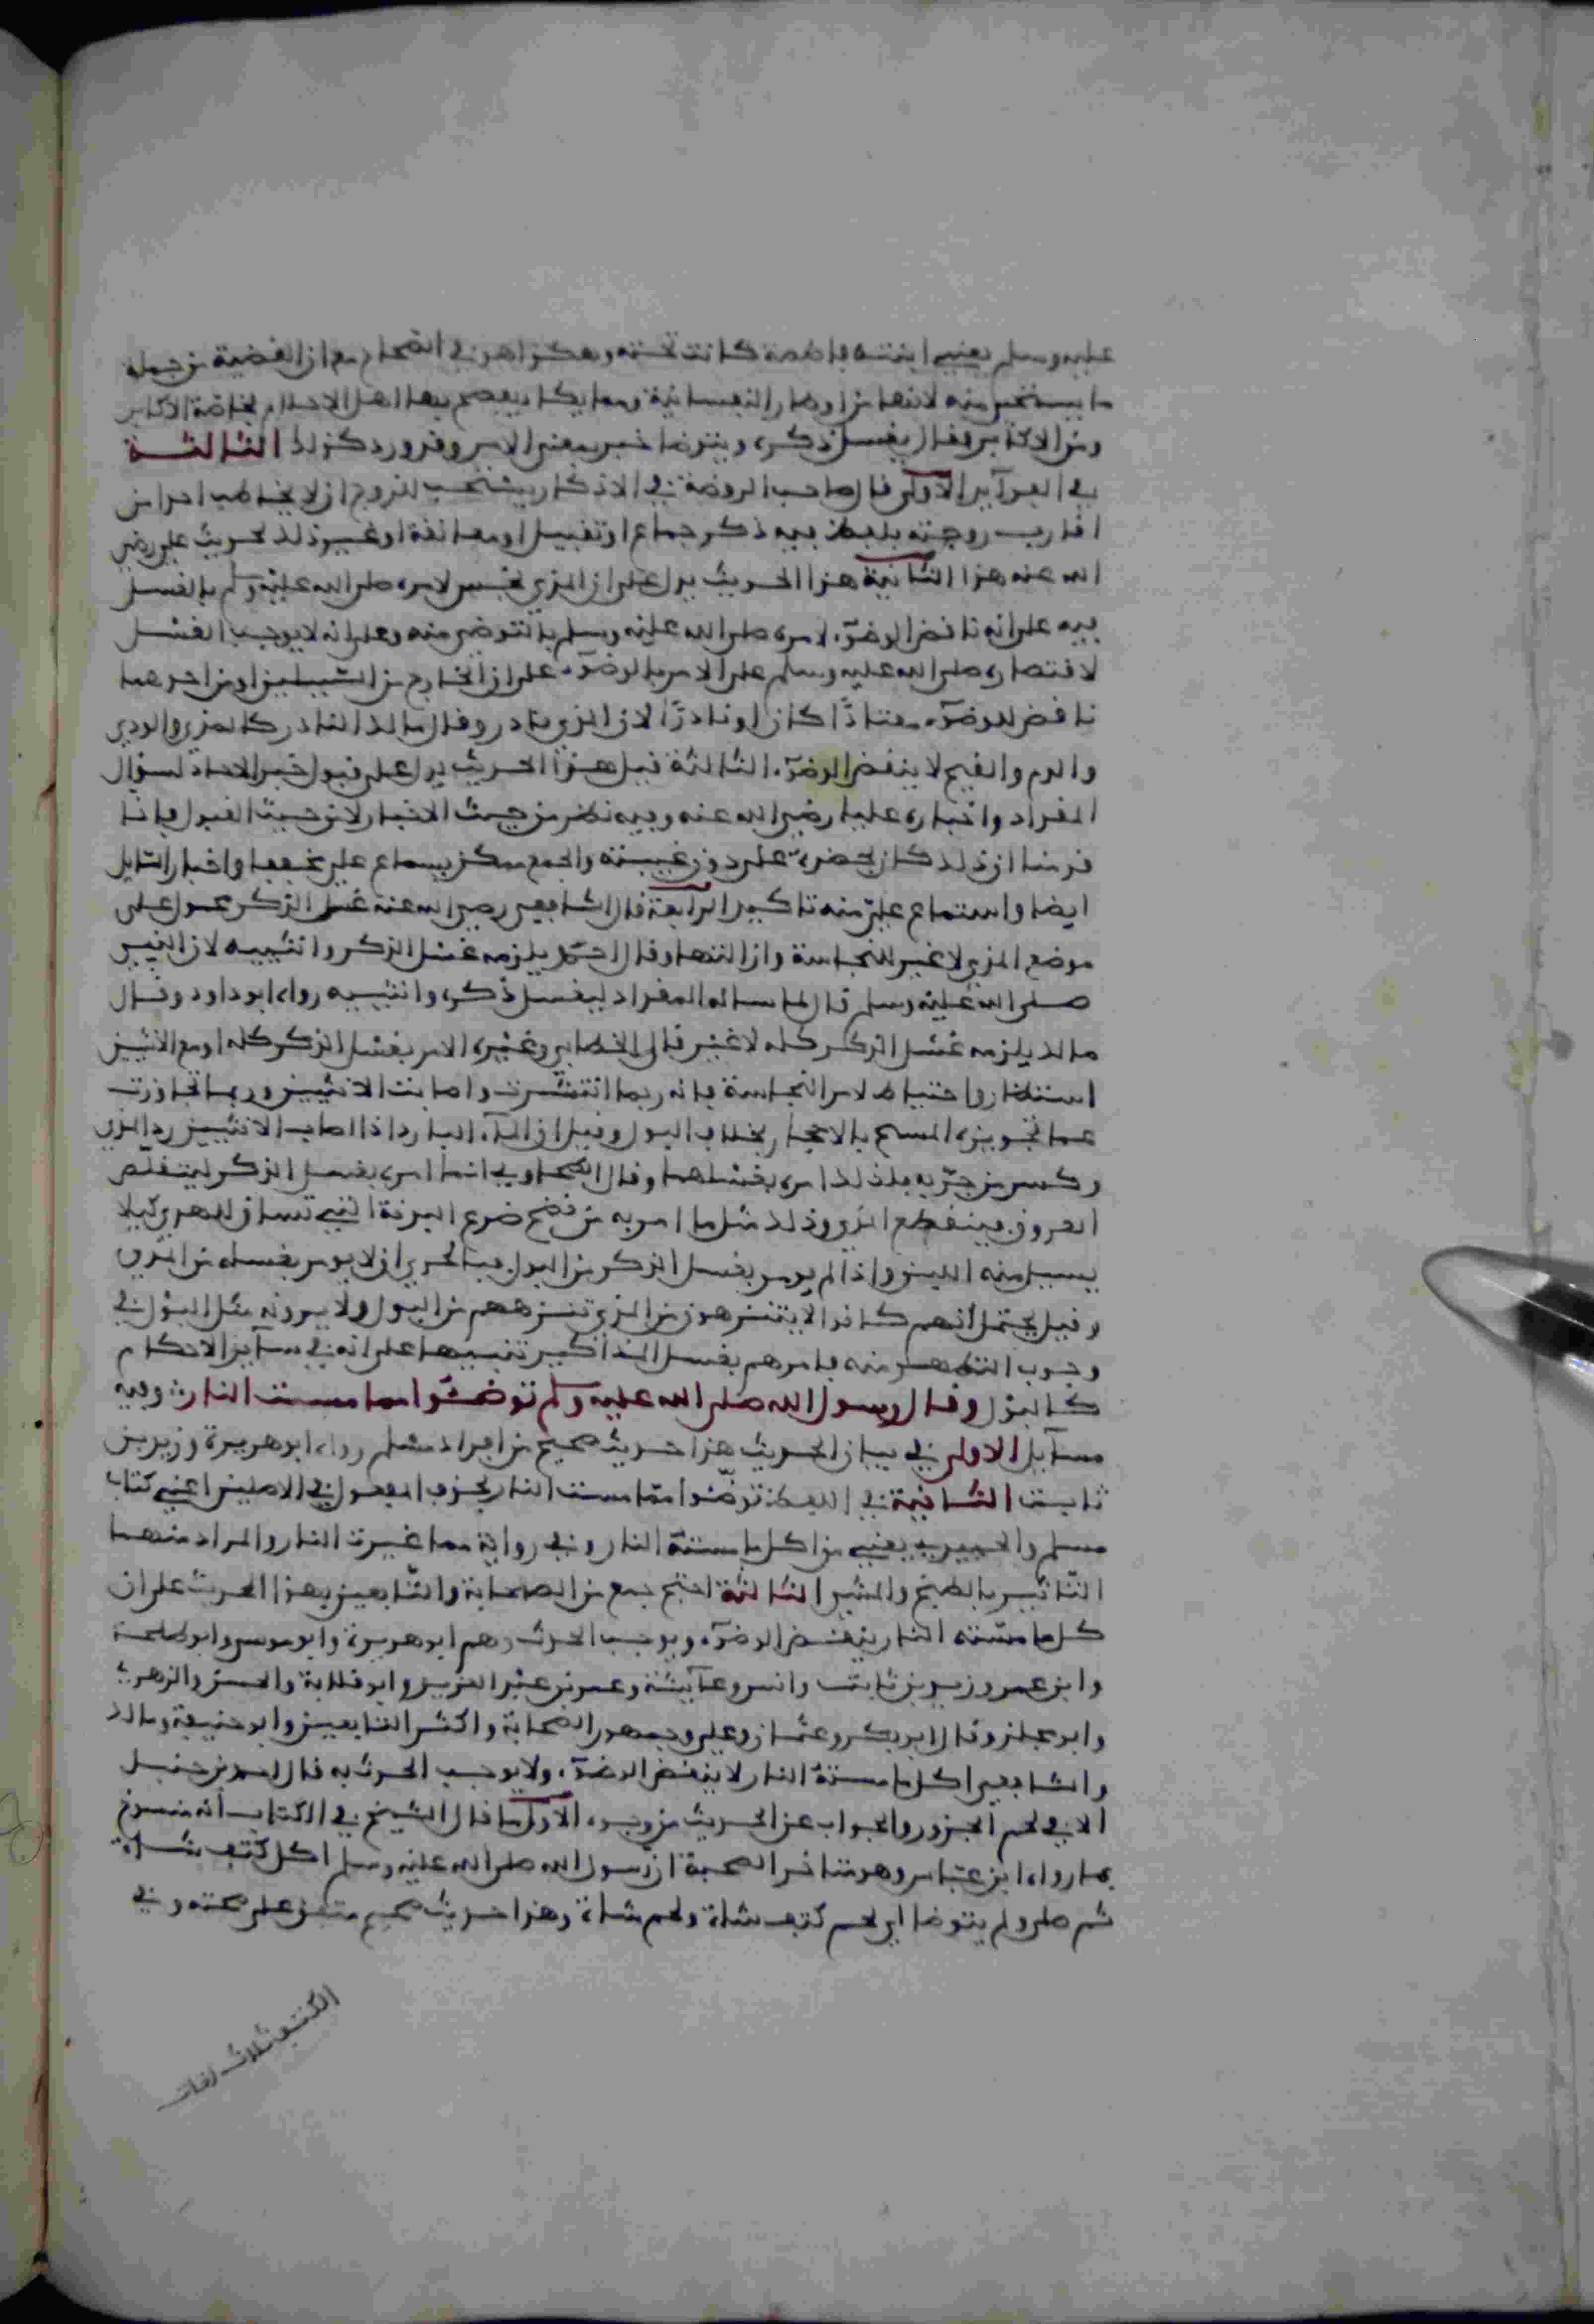 عليه وسلم يعني ابنته فاطمة كانت تحته وهكذا هو في الصحاح مع ان القضية من جملة
ما يستحيى منه لانها من اوطار النفسانية ومما يكا يفصح بها اهل الاحلام بخاصة الاكابر
ومن الاكابر وقال يغسل ذكره ويتوضا خبر بمعنى الامر وقد ورد كذلك الثالثة
في الفوآيد الاولى قال صاحب الروضة في الاذكار يستحب للزوج ان لا يخاطب احدا من
اقارب زوجته بلفظ فيه ذكر جماع او تقبيل او معانقة او غير ذلك لحديث علي رضي
الله عنه هذا الثانية هذا الحديث يدل على ان المذي نجس لامره صلى الله عليه وسلم بالغسل
فيه على انه ناقض الوضوء لامره صلى الله عليه وسلم بالتوضي منه وعلى انه لا يوجب الغسل
لاقتصاره صلى الله عليه وسلم على الامر بالوضوء على ان الخارج من السبيلين او من احدهما
ناقض للوضوء معتادًا كان او نادرًا لان المذي نادر وقال مالك النادر كالمذي والودي
والدم والقيح لا ينقض الوضوء الثالثة قيل هذا الحديث يدل على قبول خبر الاحاد لسؤال
المقداد واخباره عليا رضي الله عنه وفيه نظر من حيث الاخبار لا من حيث القبول فانا
فرضنا ان ذلك كان بحضرة علي دون غيبته والجمع ممكن بسماع علي واخبار السايل
ايضا واستماع علي منه تاكيد الرابعة قال الشافعي رضي الله عنه غسل الذكر محمول على
موضع المذي لا غير للنجاسة وازالتها وقال احمد يلزمه غسل الذكر وانثييه لان النبي
صلى الله عليه وسلم قال لما ساله المقداد ليغسل ذكره وانثييه رواه ابو داود وقال
مالك يلزمه غسل الذكر كله لا غير قال الخطابي وغيره الامر بغسل الذكر كله او مع الانثيين
استظهار واحتياط لامر النجاسة فانه ربما انتشرت واصابت الانثيين وربما تجاوزت
عما تجويزه المسح بالاحجار بخلاف البول وقيل ان المآء البارد اذا اصاب الانثيين رد المذي
وكسر من حره فلذلك امره بغسلهما وقال الطحاوي انما امره بغسل الذكر ليتقلص
العروق فينقطع المذي وذلك مثل ما امر به من نضح ضرع البدنة التي تساق للهدي كيلا
يسيل منه اللبن واذا لم يومر بغسل الذكر من البول فبالحري ان لا يومر بغسله من المذي
وقيل يحتمل انهم كانوا لا يتنزهون من المذي تنزههم من البول ولا يرونه مثل البول في
وجوب التطهر منه فامرهم بغسل المذاكير تنبيها على انه في سآير الاحكام
كالبول وقال رسول الله صلى الله عليه وسلم توضئوا مما مست النار وفيه
مسآيل الاولى في بيان الحديث هذا حديث صحيح من افراد مسلم رواه ابو هريرة وزيد بن
ثابت الثانية في اللفظ توضئوا مما مست النار بحذف المفعول في الاصلين اعني كتاب
مسلم والحميدي يعني من اكل ما مسته النار وفي رواية مما غيرت النار والمراد منهما
التاثير بالطبخ والشي الثالثة احتج جمع من الصحابة والتابعين بهذا الحديث على ان
كل ما مسته النار ينقض الوضوء ويوجب الحدث وهم ابو هريرة وابو موسى وابو طلحة
وابن عمر وزيد بن ثابت وانس وعآيشة وعمر بن عبد العزيز وابو قلابة والحسن والزهري
وابو مجلز وقال ابو بكر وعثمان وعلي وجمهور الصحابة واكثر التابعين وابو حنيفة ومالك
والشافعي اكل ما مسته النار لا ينقض الوضوء ولا يوجب الحدث به قال احمد بن حنبل
الا في لحم الجزور والجواب عن الحديث من وجوه الاول ما قال الشيخ في الكتاب انه منسوخ
بما رواه ابن عباس وهو متاخر الصحبة ان رسول الله صلى الله عليه وسلم اكل كتف شاة
ثم صلى ولم يتوضا اي لحم كتف شاة ولحم شاة وهذا حديث صحيح متفق على صحته وفي
الكتف ثلاث لغات